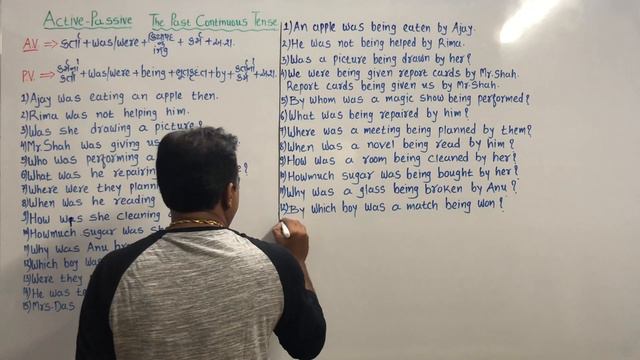 Active-Passive The Past Continuous Tense
A.V. ⇒ કર્તા + was/were + + કર્મ + અન્ય.
P.V. ⇒ + was/were + being + ભૂતકૃદંત + by + + અન્ય.
1) Ajay was eating an apple then.
2) Rima was not helping him.
3) Was she drawing a picture?
4) Mr. Shah was giving us
5) Who was performing a
6) What was he repairing ?
7) Where were they
8) When was he reading
9) How was she cleaning
10) Howmuch sugar was
11) Why was Anu
12) Which boy was
13) Were they
14) He was
15) Mrs. Das
1) An apple was being eaten by Ajay.
2) He was not being helped by Rima.
3) Was a picture being drawn by her?
4) We were being given report cards by Mr. Shah.
Report cards being given us by Mr. Shah.
5) By whom was a magic show being performed?
6) What was being repaired by him?
7) Where was a meeting being planned by them?
8) When was a novel being read by him?
9) How was a room being cleaned by her?
10) Howmuch sugar was being bought by her?
11) Why was a glass being broken by Anu?
12) By which boy was a match being won?